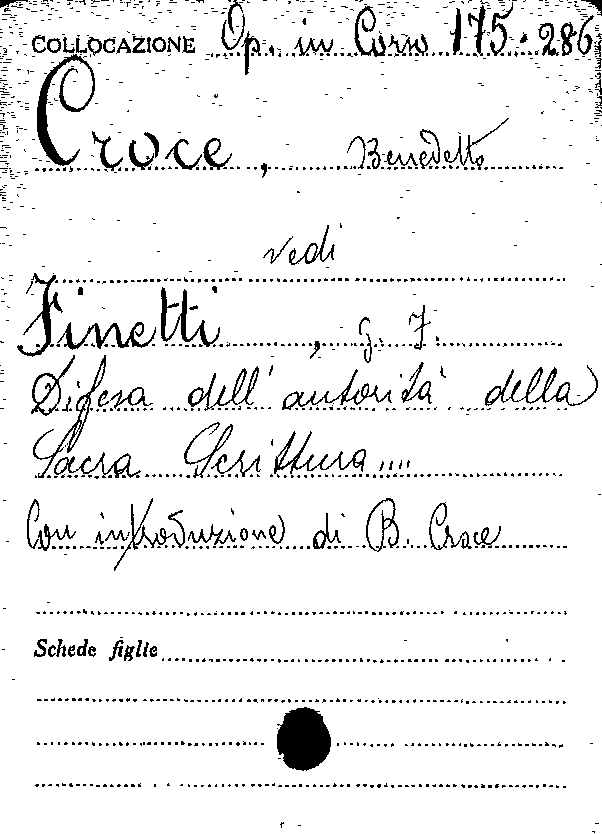 COLLOCAZIONE Op. in Corso 175.286
Croce, Benedetto
vedi
Finetti, G. F.
Difesa dell'autorità della
Sacra Scrittura....
Con introduzione di B. Croce
Schede figlie